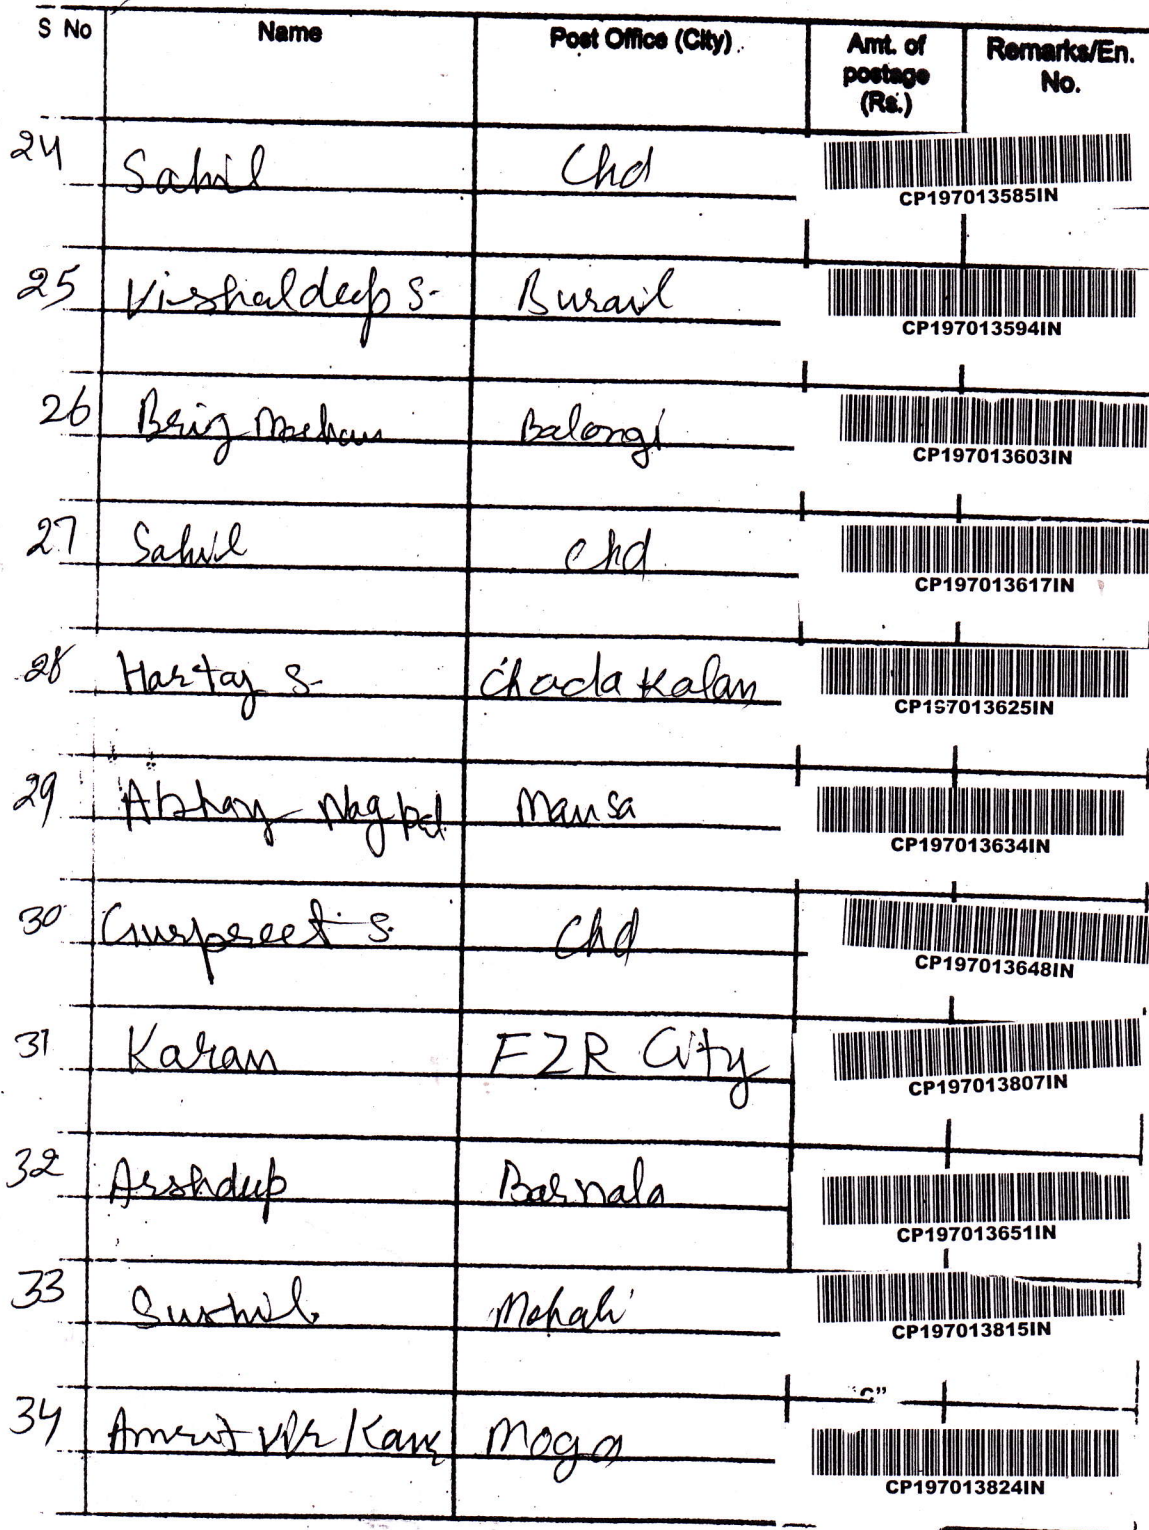 S No Name Post Office (City) Amt. of postage (Rs.) Remarks/En. No.
24 Sahil Chd CP197013585IN
25 Vishaldeep S. Burail CP197013594IN
26 Brij Mohan Balongi CP197013603IN
27 Sahil Chd CP197013617IN
28 Hartaj S. Chada Kalan CP197013625IN
29 Abhay Nagpal Mansa CP197013634IN
30 Gurpreet S. Chd CP197013648IN
31 Karan FZR City CP197013807IN
32 Arshdeep Barnala CP197013651IN
33 Sushil Mohali CP197013815IN
"C"
34 Amrit Kaur Moga CP197013824IN